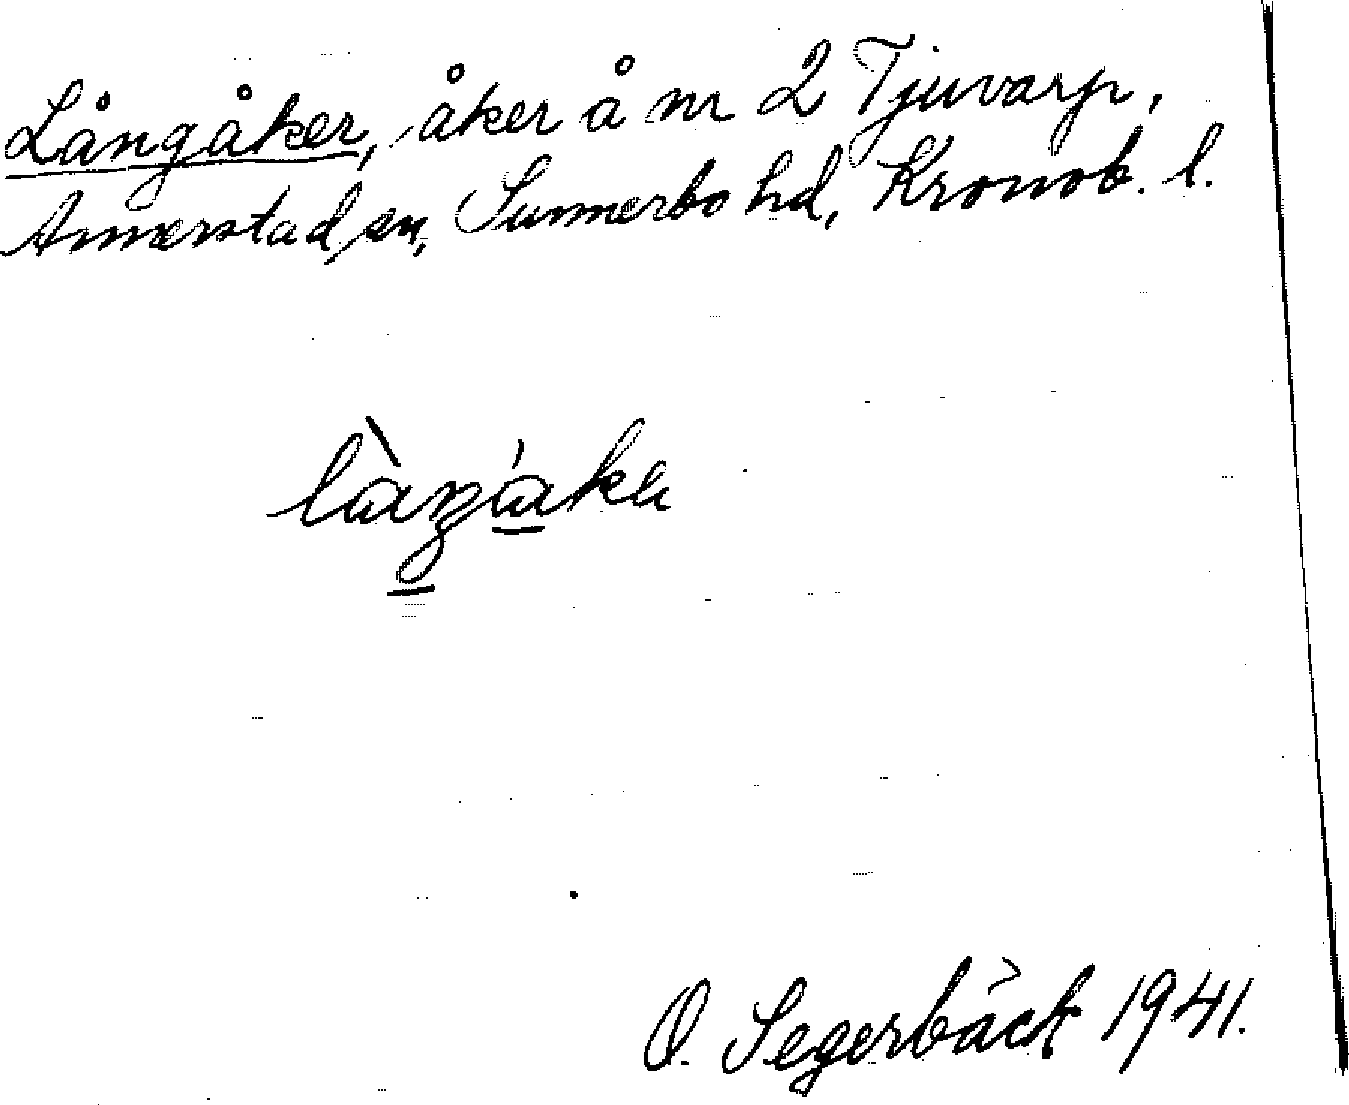 Långåker, åker å nr 2 Tjuvarp,
Annerstad sn, Sunnerbo hd, Kronob. l.
O. Segerbäck 1941.